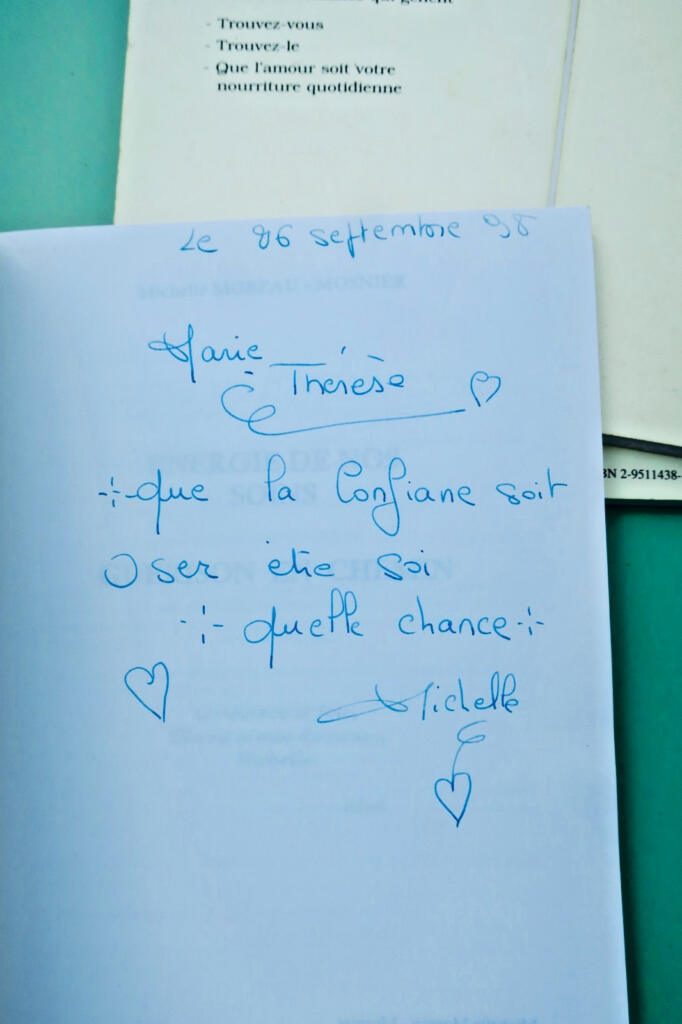 qui gênent
- Trouvez-vous
- Trouvez-le
- Que l'amour soit votre
nourriture quotidienne
Le 26 septembre 98
Michelle MOREAU - MOSNIER
Marie
Thérèse
BN 2-9511438-
ENERGIE DE NOS
que la Confiane soit
SOINS
Oser être soi
quelle chance
Michelle